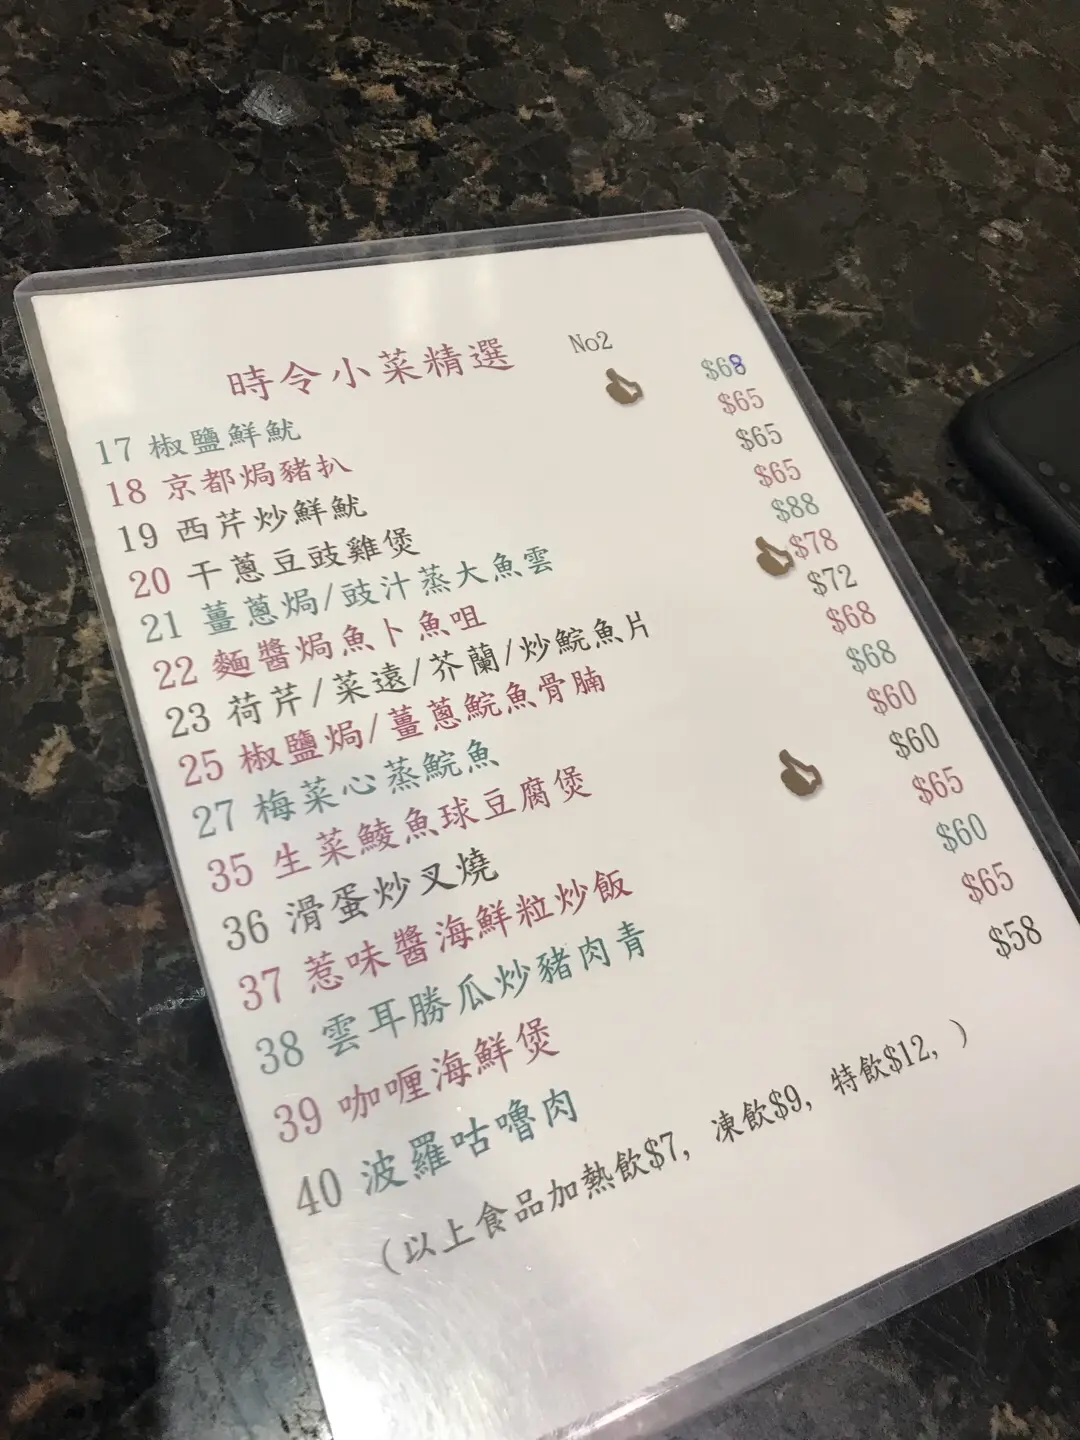 時令小菜精選 No2
17 椒鹽鮮魷 $68
18 京都焗豬扒 $65
19 西芹炒鮮魷 $65
20 干蔥豆豉雞煲 $65
21 薑蔥焗/豉汁蒸大魚雲 $88
22 麵醬焗魚卜魚咀 $78
23 荷芹/菜遠/芥蘭/炒鯇魚片 $72
25 椒鹽焗/薑蔥鯇魚骨腩 $68
27 梅菜心蒸鯇魚 $68
35 生菜鯪魚球豆腐煲 $60
36 滑蛋炒叉燒 $60
37 惹味醬海鮮粒炒飯 $65
38 雲耳勝瓜炒豬肉青 $60
39 咖喱海鮮煲 $65
40 波羅咕嚕肉 $58
(以上食品加熱飲$7, 凍飲$9, 特飲$12, )